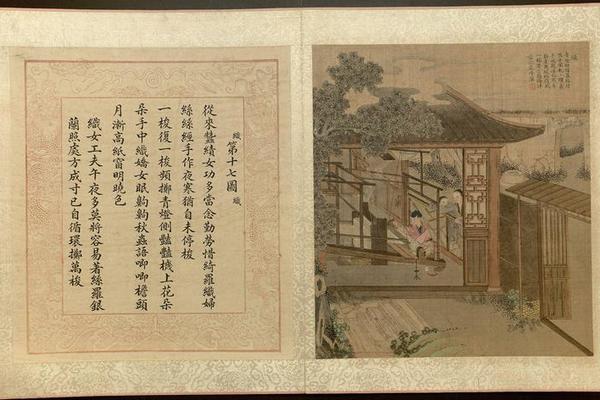 織 第十七圖 織
從來蠶績女功多當念勤勞惜綺羅織婦
絲絲經手作夜寒猶自未停梭
一梭復一梭頻擲青燈側豔豔機上花朵
朵手中織嬌女眠齁齁秋蟲語唧唧檐頭
月漸高紙窗明曉色
織女工夫午夜多莫將容易著絲羅銀
蘭照處方成寸已自循環擲萬梭
織